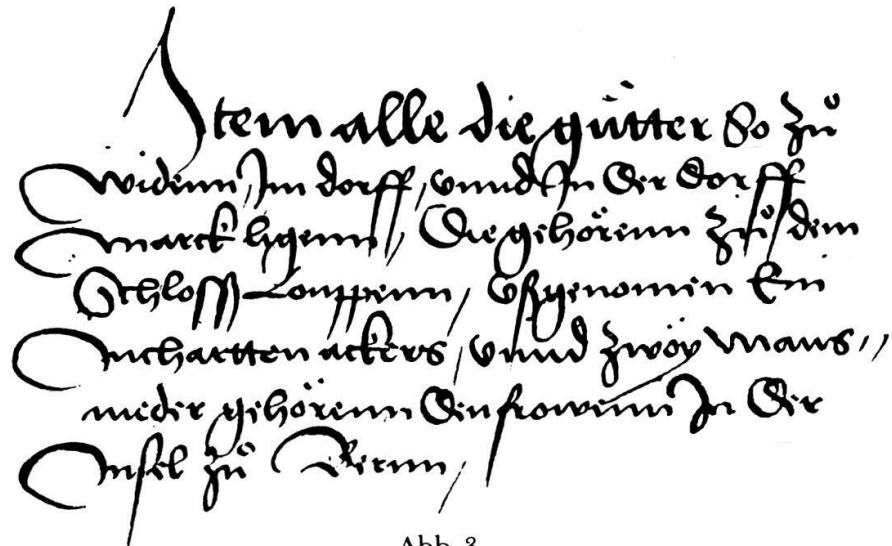 Item alle die gu̍tter So zů
widenn, Im dorff, vnnd In der dorff
marck ligenn, Die gehörenn zů dem
Schlossß Louppenn, vßgenomen Ein
Juchartten ackers, vnnd zwöy Mans,,
meder gehörenn den frowenn In der
Insel zů Bernn,
Abb. 3